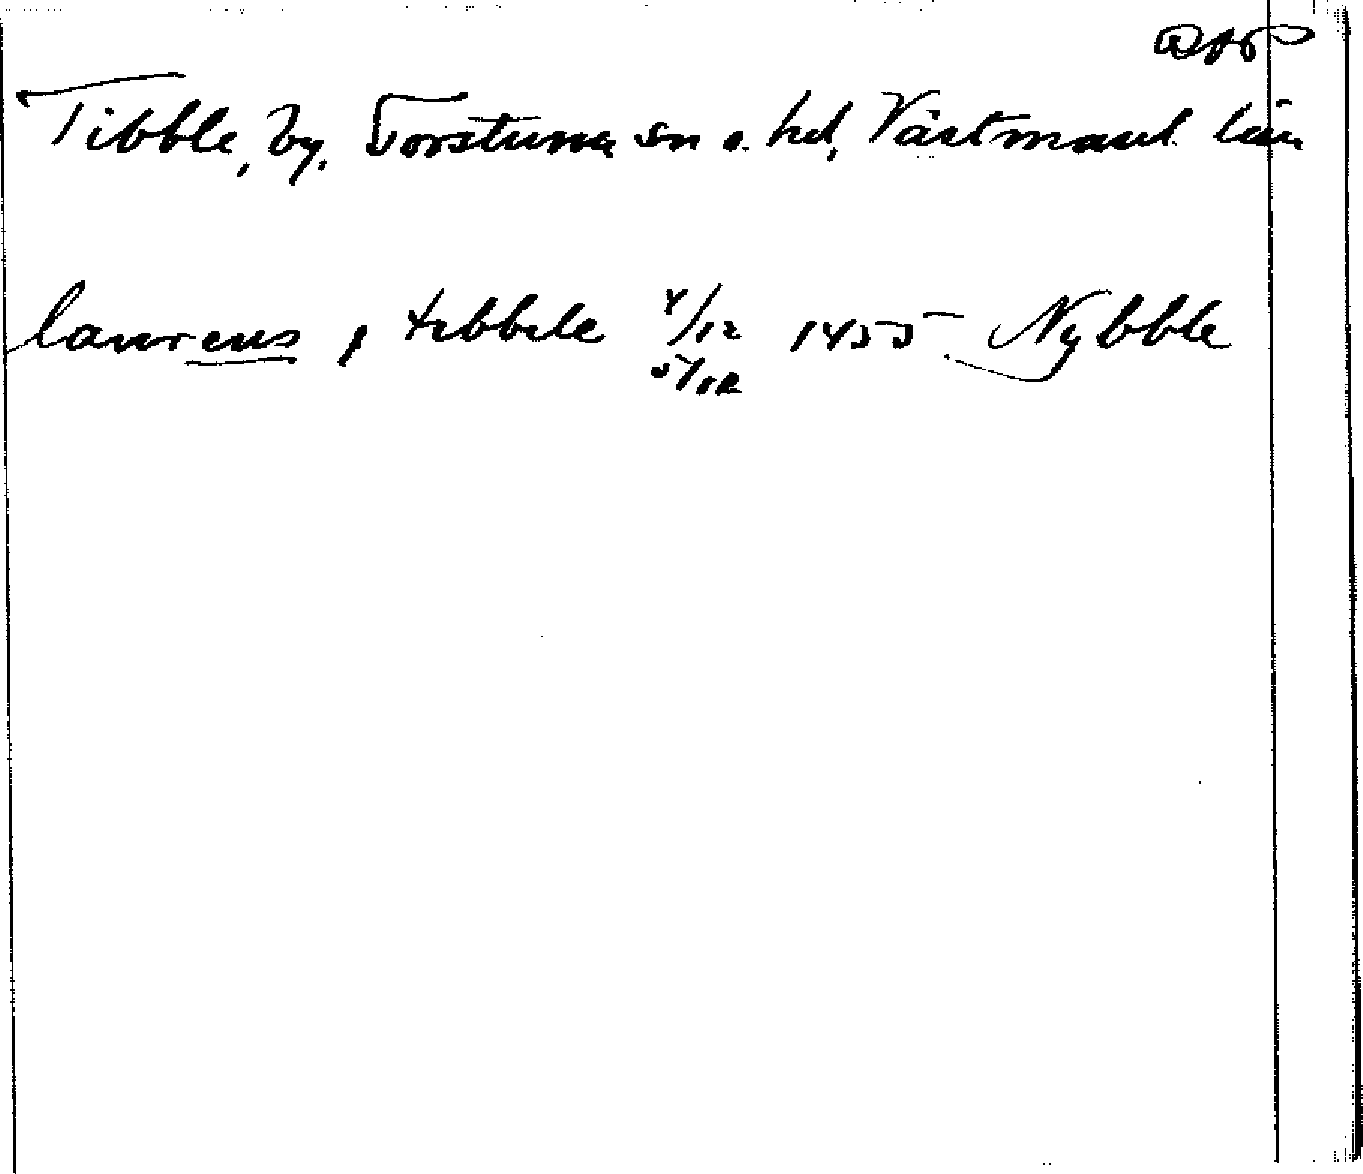 Tibble, by, Torstuna sn o. hd, Västmanl. län
laurens j tebbele 4/12 1455 Nybble
5/12